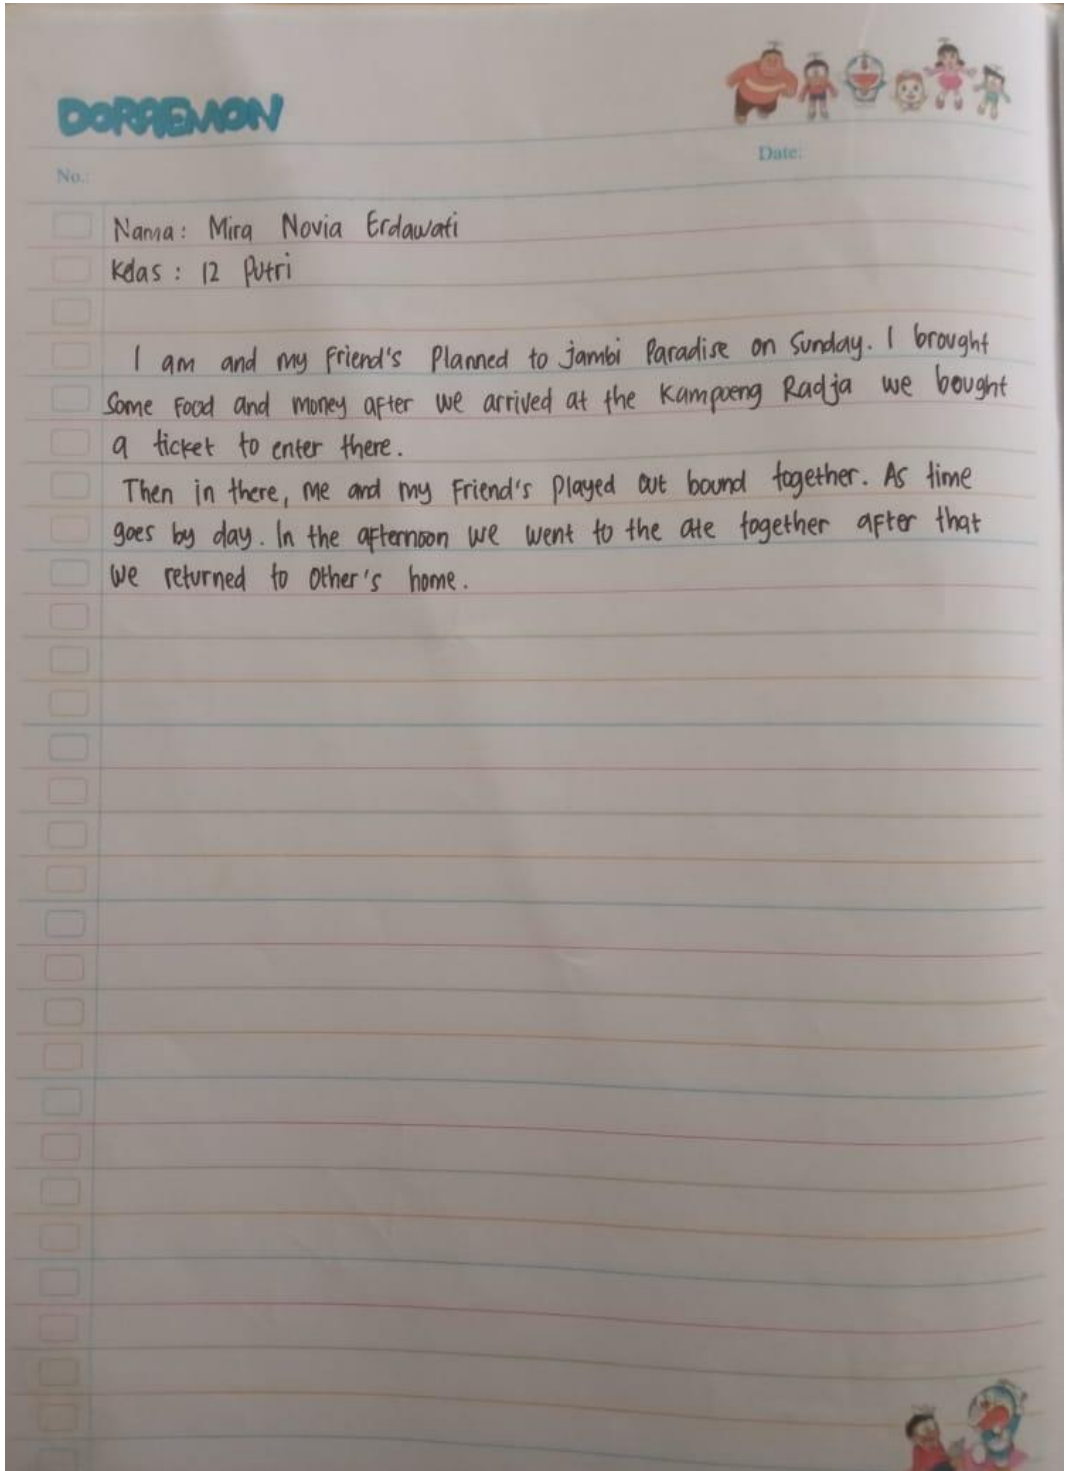 DORAEMON
Date:
No.:
Nama: Mira Novia Erdawati
Kelas : 12 Putri
I am and my Friend's Planned to jambi Paradise on Sunday. I brought
Some Food and money after we arrived at the Kampoeng Radja we bought
a ticket to enter there.
Then in there, me and my Friend's Played out bound together. As time
goes by day. In the afternoon we went to the ate together after that
We returned to Other's home.